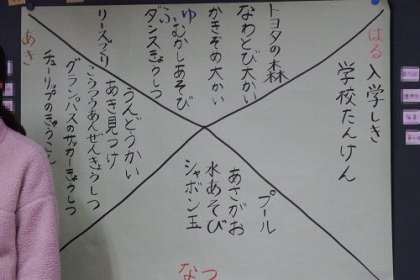 はる
入学しき
学校たんけん
トヨタの森
なわとび大かい
かきぞめ大かい
ふゆ
むかしあそび
ダンスきょうしつ
プール
あさがお
水あそび
シャボン玉
なつ
あき
うんどうかい
あき見つけ
こうつうあんぜんきょうしつ
リースづくり
グランパスのサッカーきょうしつ
チューリップのきゅうこん